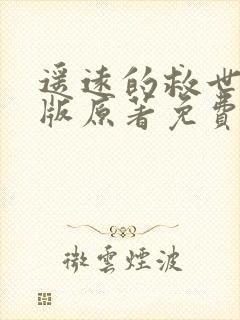 遥远的救世
版原著免費
微雲煙波